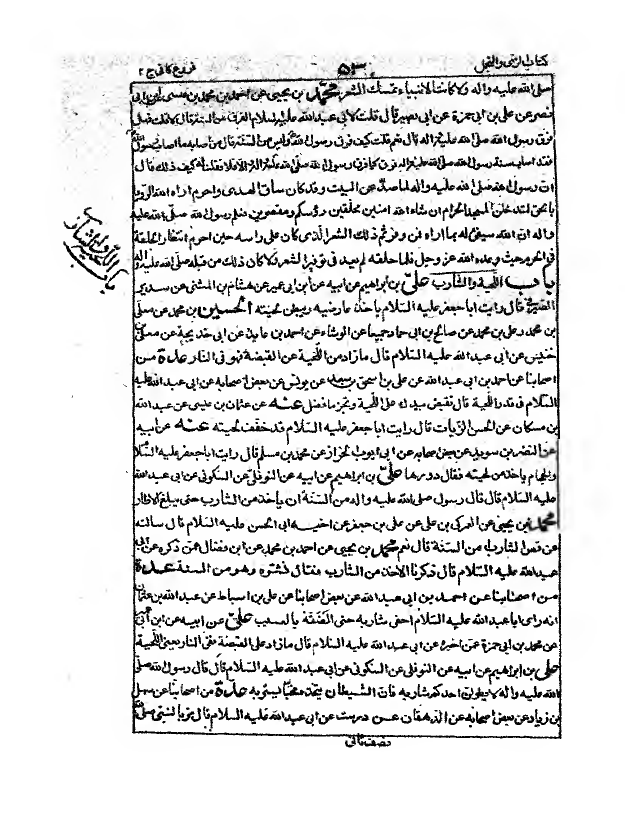 كتاب الزى والتجمل ٥٣٠ فروع كافى ج ٢
صلى الله عليه واله ولا كانت الانبياء تمسك الشعر محمد بن يحيى عن احمد بن محمد بن عيسى عن ابن ابى
نصر عن على بن ابى حمزة عن ابى بصير قال قلت لابى عبد الله عليه السلام الفرق من السنة قال لا قلت فهل
فرق رسول الله صلى الله عليه واله قال نعم قلت كيف فرق رسول الله وليس من السنة قال من اصابه ما اصاب رسول الله
فقد اصاب سنة رسول الله صلى الله عليه واله والا فلا قلت له كيف ذلك قال
ان رسول الله صلى الله عليه واله لما صد عن البيت وقد كان ساق الهدى واحرم اراه الله الرؤيا
بالحق لتدخلن المسجد الحرام ان شاء الله امنين محلقين رؤسكم ومقصرين فعلم رسول الله صلى الله عليه
واله ان الله سيفى له بما اراه فمن ثم وفر ذلك الشعر الذى كان على راسه حين احرم انتظارا لحلقه
فى الحرم حيث وعده الله عز وجل فلما حلقه لم يعد فى توفير الشعر ولا كان ذلك من قبله صلى الله عليه واله
باب اللحية والشارب على بن ابراهيم عن ابيه عن ابن ابى عمير عن هشام بن المثنى عن سدير
الصيرفى قال رايت ابا جعفر عليه السلام ياخذ عارضيه ويبطن لحيته الحسين بن محمد عن معلى
بن محمد وعلى بن محمد عن صالح بن ابى حماد جميعا عن الوشاء عن احمد بن عايذ عن ابى خديجة عن معلى
خنيس عن ابى عبد الله عليه السلام قال ما زاد من اللحية عن القبضة فهو فى النار عدة من
اصحابنا عن احمد بن ابى عبد الله عن على بن اسحق عن يونس عن بعض اصحابه عن ابى عبد الله عليه
السلام فى قدر اللحية قال تقبض بيدك على اللحية وتجز ما فضل عنه عن عثمان بن عيسى عن عبد الله
بن مسكان عن الحسن الزيات قال رايت ابا جعفر عليه السلام قد خفف لحيته عنه عن ابيه
عن النضر بن سويد عن بعض اصحابه عن ابى ايوب الخزاز عن محمد بن مسلم قال رايت ابا جعفر عليه السلا
والحجام ياخذ من لحيته فقال دورها على بن ابراهيم عن ابيه عن النوفلى عن السكونى عن ابى عبد الله
عليه السلام قال قال رسول صلى الله عليه واله من السنة ان ياخذ من الشارب حتى يبلغ الاطار
محمد بن يحيى عن العمركى بن على عن على بن جعفر عن اخيه ابى الحسن عليه السلام قال سالته
عن قص الشارب من السنة قال نعم محمد بن يحيى عن احمد بن محمد عن ابن فضال عمن ذكره عن ابى
عبد الله عليه السلام قال ذكرنا الاخذ من الشارب فقال نشرة وهو من السنة عدة
من اصحابنا عن احمد بن ابى عبد الله عن بعض اصحابنا عن على بن اسباط عن عبد الله بن عثمان
انه راى ابا عبد الله عليه السلام احفى شاربه حتى الصقه بالعسيب على عن ابيه عن ابن ابى
عن محمد بن ابى حمزة عمن اخبره عن ابى عبد الله عليه السلام قال ما زاد على القبضة ففى النار يعنى اللحية
على بن ابراهيم عن ابيه عن النوفلى عن السكونى عن ابى عبد الله عليه السلام قال قال رسول الله صلى
الله عليه واله لا يطولن احدكم شاربه فان الشيطان يتخذه مخبا يستتر به عدة من اصحابنا عن سهل
بن زياد عن بعض اصحابه عن الدهقان عن درست عن ابى عبد الله عليه السلام قال مر بالنبى صلى الله
نصف ثانى